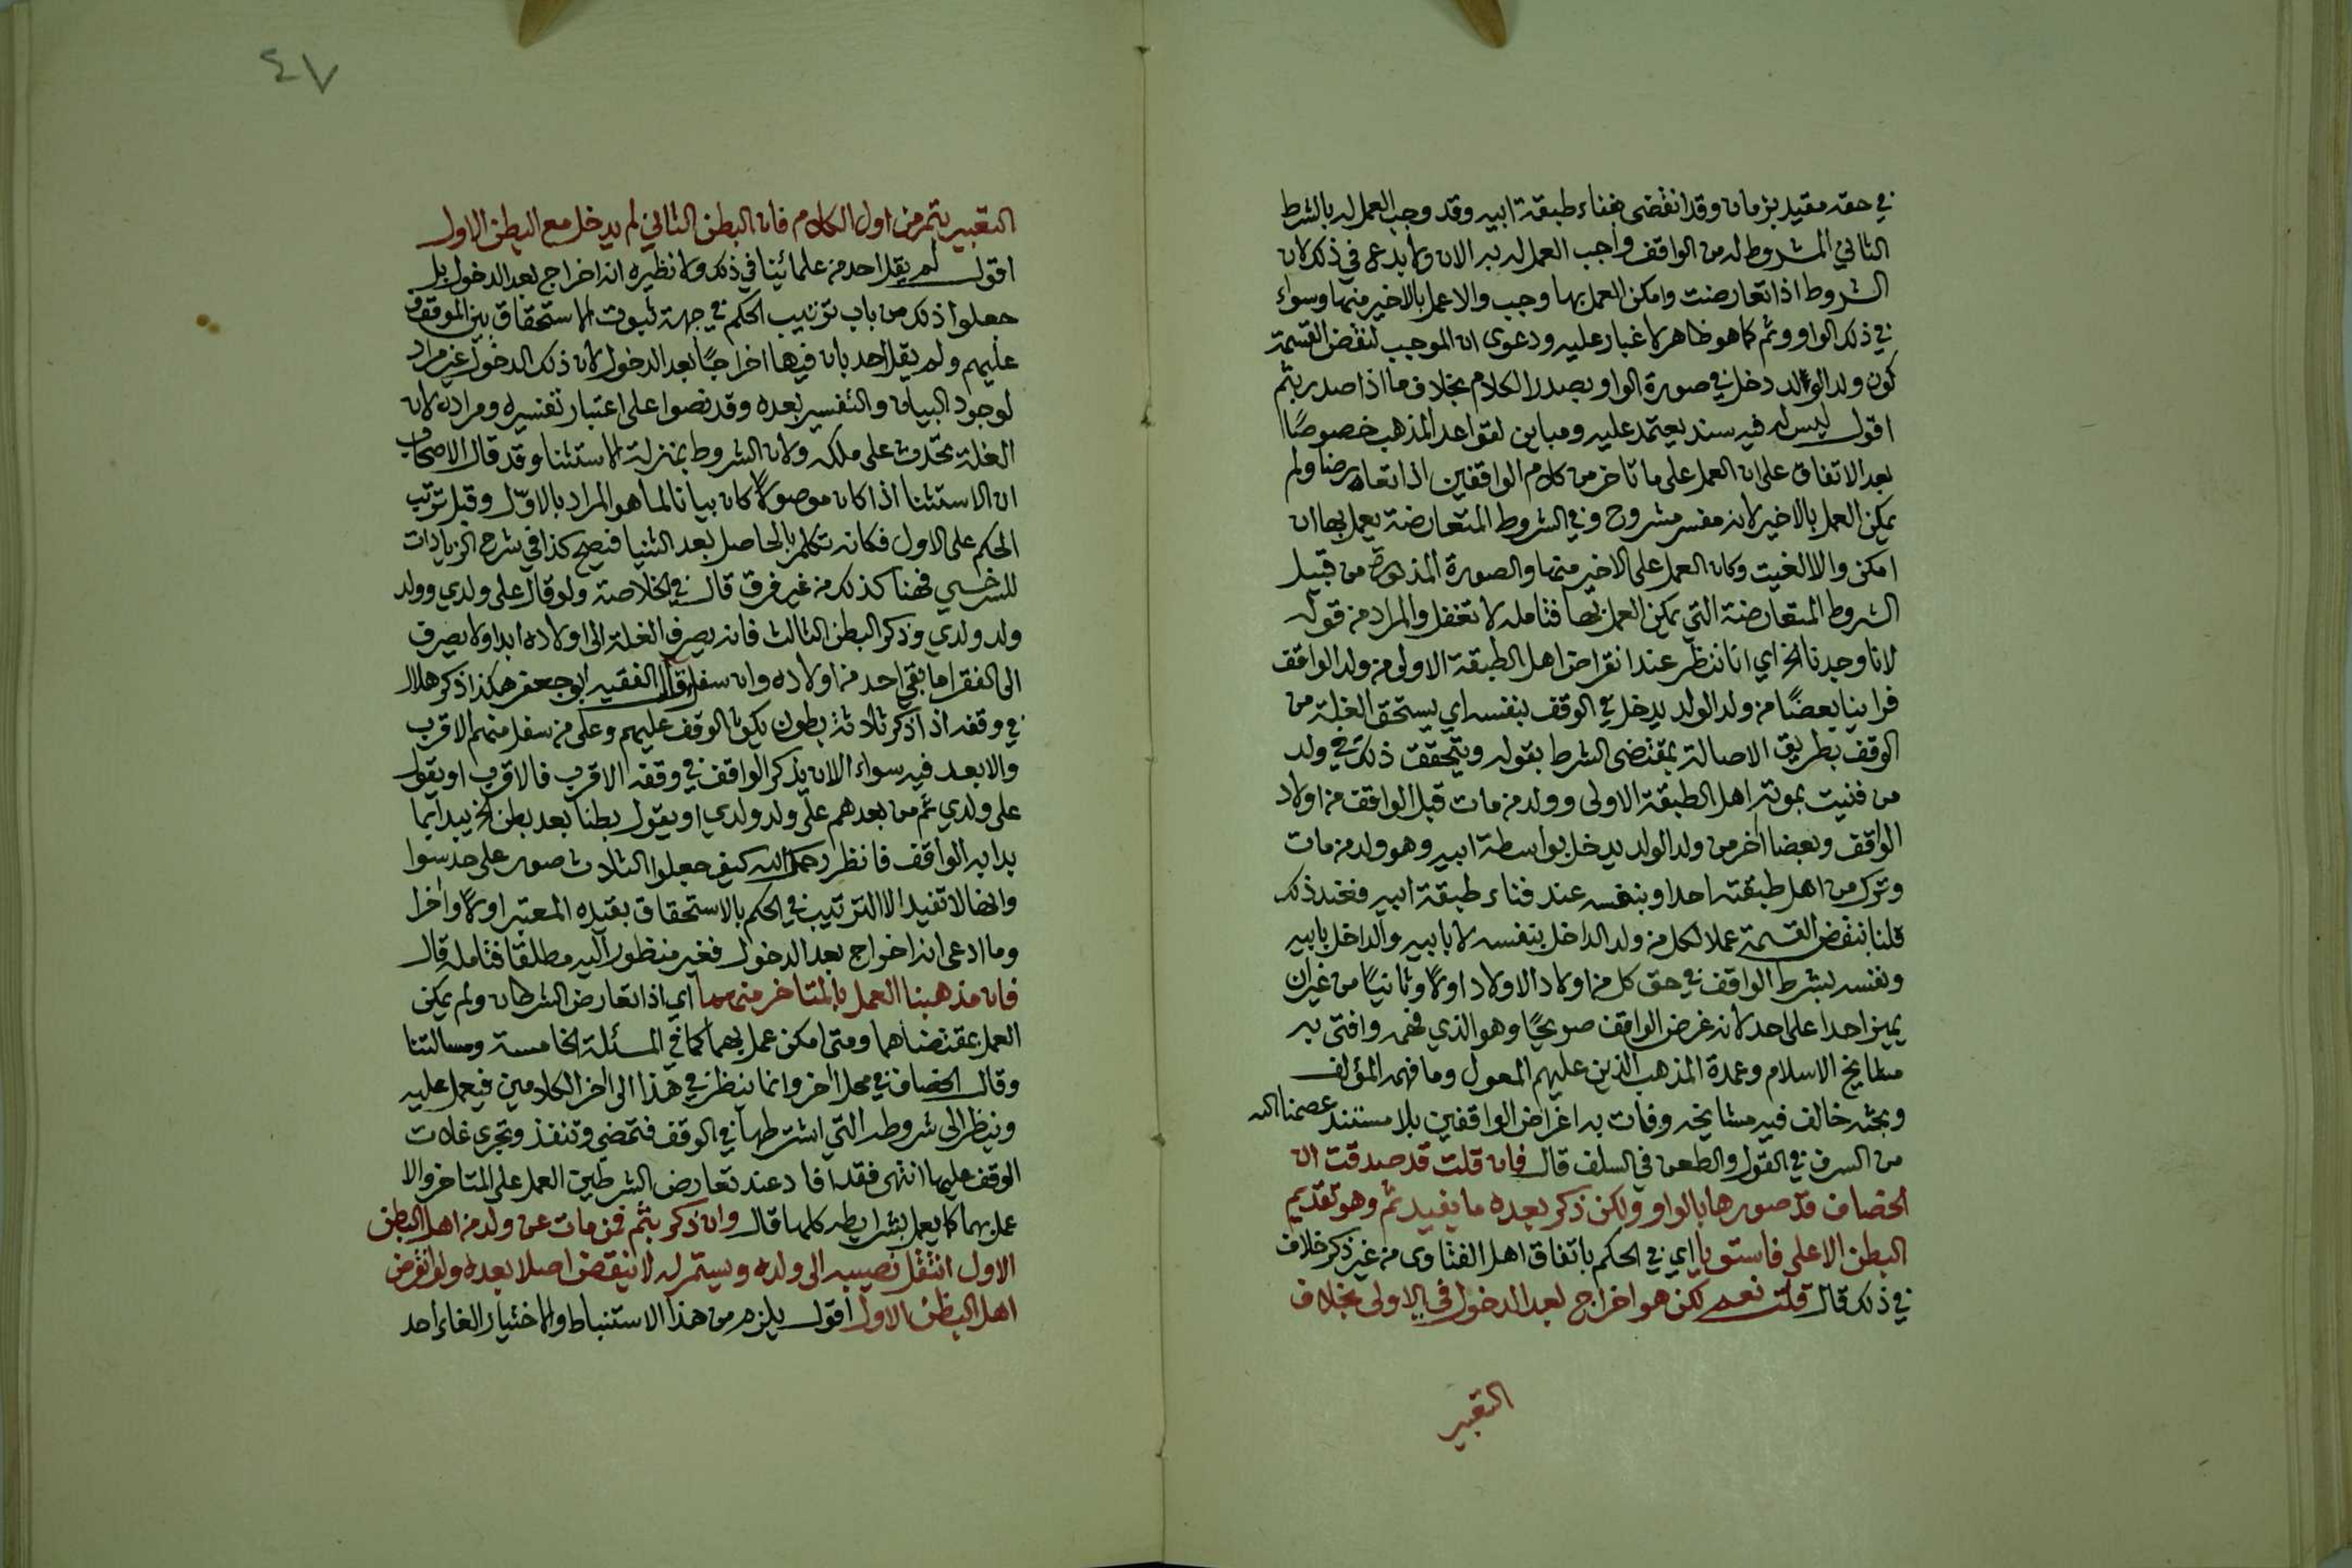 في حقه مقيد بزمان وقد انقضى بفناء طبقة ابيه وقد وجب العمل له بالشرط
الثاني المشروط له من الواقف واجب العمل له به الان ولا بدع في ذلك لان
الشروط اذا تعارضت وامكن العمل بها وجب والا عمل بالاخير منها وسواء
في ذلك الواو وثم كما هو ظاهر لا غبار عليه ودعوى ان الموجب لنقض القسمة
كون ولد الولد دخل في صورة الواو بصدر الكلام بخلاف ما اذا صدر بثم
اقول ليس له فيه سند يعتمد عليه ومباين لقواعد المذهب خصوصًا
بعد الاتفاق على ان العمل على ما تاخر من كلام الواقفين اذا تعارضا ولم
يمكن العمل بالاخير لانه مفسر مشروح وفي الشروط المتعارضة يعمل بها ان
امكن والا الغيت وكان العمل على الاخير منها والصورة المذكورة من قبيل
الشروط المتعارضة التي يمكن العمل بها فتامله لا تغفل والمراد من قوله
لانا وجدنا الخ اي انا ننظر عند انقراض اهل الطبقة الاولى من ولد الواقف
فراينا بعضًا من ولد الولد يدخل في الوقف بنفسه اي يستحق الغلة من
الوقف بطريق الاصالة بمقتضى الشرط بقوله ويتحقق ذلك في ولد
من فنيت بموته اهل الطبقة الاولى وولد من مات قبل الواقف من اولاد
الواقف وبعضا اخر من ولد الولد يدخل بواسطة ابيه وهو ولد من مات
وترك من اهل طبقته احدا وبنفسه عند فناء طبقة ابيه فعند ذلك
قلنا ننقض القسمة عملا لكل من ولد الداخل بنفسه لا بابيه والداخل بابيه
ونفسه بشرط الواقف في حق كل من اولاد الاولاد اولًا وثانيًا من غير ان
يميز احدا على احد لانه غرض الواقف صريحًا وهو الذي فهمه وافتى به
مشايخ الاسلام وعمدة المذهب الذين عليهم المعول وما فهمه المؤلف
وبحثه خالف فيه مشايخه وفات به اغراض الواقفين بلا مستند عصمنا الله
من السرف في القول والطعن في السلف قال فان قلت قد صدقت ان
الخصاف قد صورها بالواو ولكن ذكر بعده ما يفيد ثم وهو تقديم
البطن الاعلى فاستويا اي في الحكم باتفاق اهل الفتاوى من غير ذكر خلاف
في ذلك قال قلت نعم لكن هو اخراج بعد الدخول في الاولى بخلاف
التعبير
٤٧
التعبير بثم من اول الكلام فان البطن الثاني لم يدخل مع البطن الاول
اقول لم يقل احد من علمائينا في ذلك ولا نظيره انه اخراج بعد الدخول بل
جعلوا ذلك من باب ترتيب الحكم في جهة ثبوت الاستحقاق بين الموقوف
عليهم ولم يقل احد بان فيها اخراجًا بعد الدخول لان ذلك الدخول غير مراد
لوجود البيان والتفسير بعده وقد نصوا على اعتبار تفسيره ومراده لان
الغلة تحدث على ملكه ولان الشروط بمنزلة الاستثنا وقد قال الاصحاب
ان الاستثنا اذا كان موصولًا كان بيانا لما هو المراد بالاوّل وقبل ترتب
الحكم على الاول فكانه تكلم بالحاصل بعد الثنيا فنصح كذا في شرح الزيادات
للسرخسي فهنا كذلك من غير فرق قال في الخلاصة ولو قال على ولدي وولد
ولد ولدي وذكر البطن الثالث فانه يصرف الغلة الى اولاده ابدا ولا يصرف
الى الفقرا ما بقي احد من اولاده وان سفل قال الفقيه ابو جعفر هكذا ذكر هلال
في وقفه اذا ذكر ثلاثة بطون يكون الوقف عليهم وعلى من سفل منهم الاقرب
والابعد فيه سواء الا ان يذكر الواقف في وقفه الاقرب فالاقرب او يقول
على ولدي ثم من بعدهم على ولد ولدي او يقول بطنا بعد بطن الخ يبدا بما
بدا به الواقف فانظر رحمك الله كيف جعلوا الثلاث صور على حد سوا
وانها لا تفيد الا الترتيب في الحكم بالاستحقاق بقيده المعتبر اولًا واخرا
وما ادعى انه اخراج بعد الدخول فغير منظور اليه مطلقا فتامله قال
فان مذهبنا العمل بالمتاخر منهما اي اذا تعارض الشرطان ولم يمكن
العمل بمقتضاهما ومتى امكن عمل بهما كما في المسئلة الخامسة ومسالتنا
وقال الخصاف في محل اخر وانما ننظر في هذا الى اخر الكلامين فيعمل عليه
وينظر الى شروطه التي اشترطها في الوقف فتمضي وتنفذ وتجرى غلات
الوقف عليها انتهى فقد افاد عند تعارض الشرطين العمل على المتاخر والا
عمل بهما كما يعمل بشرايطه كلها قال وان ذكر بثم فمن مات عن ولد من اهل البطن
الاول انتقل نصيبه الى ولده ويستمر له لا ينقض اصلا بعده ولو انقرض
اهل البطن الاول اقول يلزم من هذا الاستنباط والاختيار الغاء احد